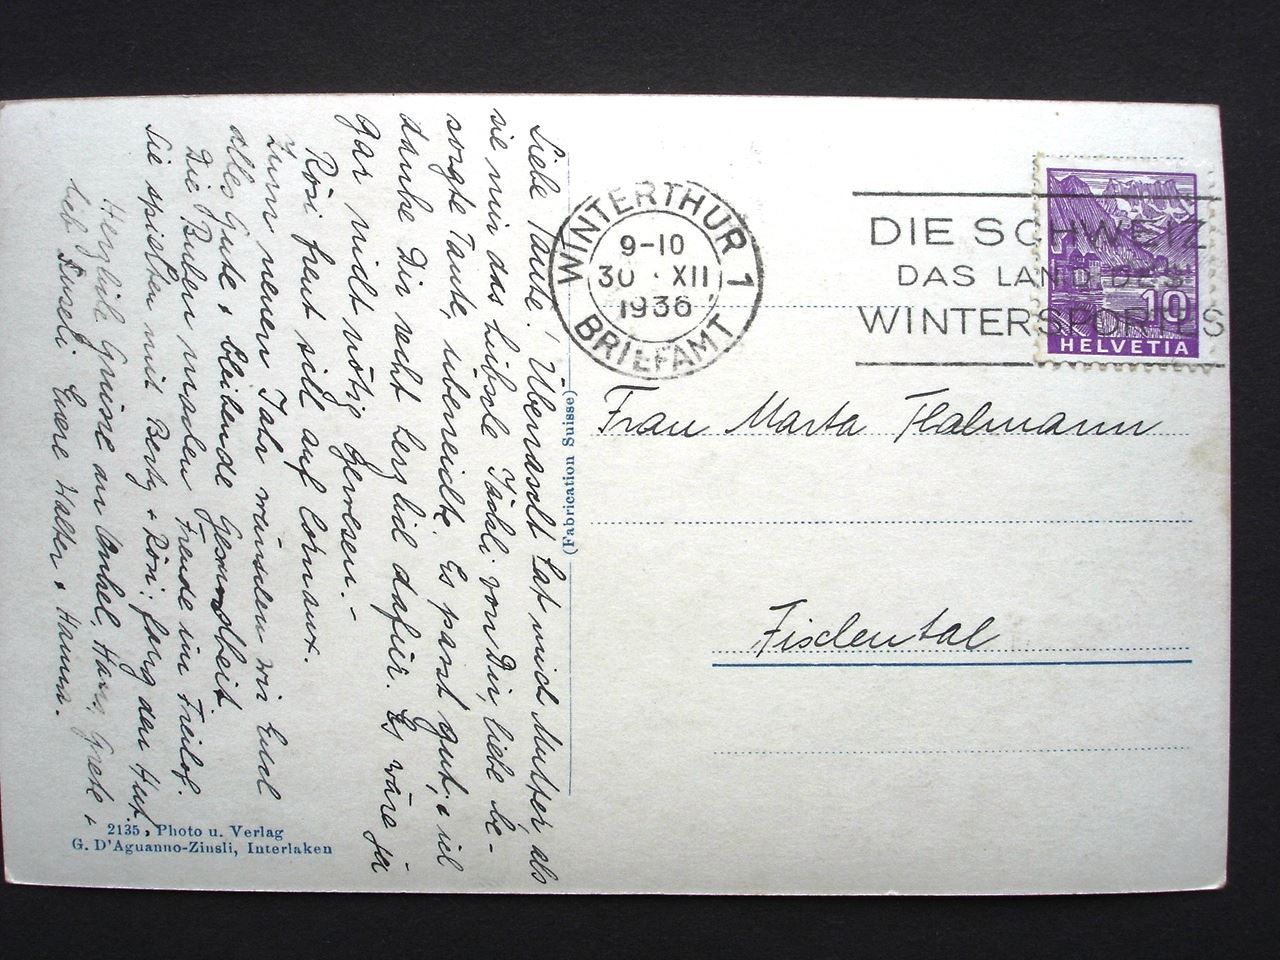 Liebe Tante! Überrascht hat mich Mutter, als
sie mir das hübsche Jäckli von Dir, liebe be-
sorgte Tante, überreichte. Es passt gut, & ich
danke Dir recht herzlich dafür. Es wäre ja
gar nicht nötig gewesen.-
Rösi freut sich auf Cornaux.
Zum neuen Jahr wünschen wir Euch
alles Gute & bleibende Gesundheit
Die Buben machen Freude im Freihof.
Sie spielten mit Berty & Rösi: fang den Hut,
Herzliche Grüsse an Onkel, Hans, Gretli &
Euere Walter & Hanna.
WINTERTHUR 1
9-10
30 · XII
1936
BRIEFAMT
DIE SCHWEIZ
DAS LAND DES
WINTERSPORTES
10
HELVETIA
Frau Marta Halmann
Fischental
(Fabrication Suisse)
2135, Photo u. Verlag
G. D'Aguanno-Zinsli, Interlaken